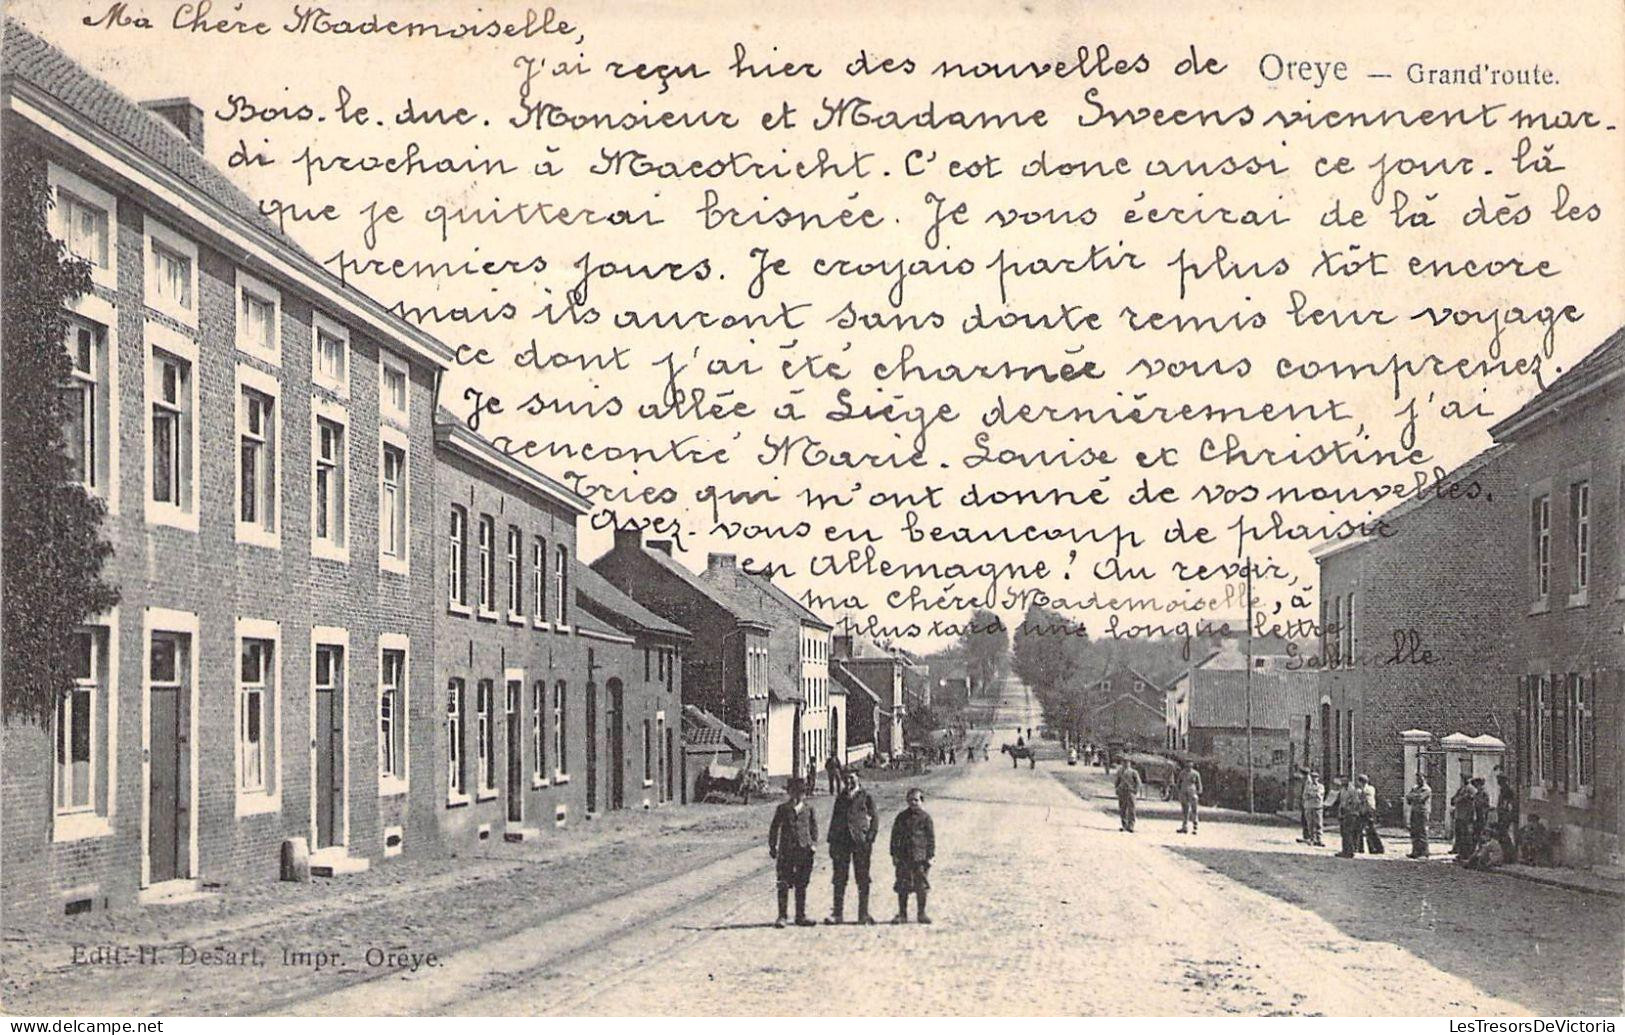 Ma Chère Mademoiselle,
J'ai reçu hier des nouvelles de
Oreye — Grand'route.
Bois-le-duc. Monsieur et Madame Sweens viennent mar-
di prochain à Maestricht. C'est donc aussi ce jour-là
que je quitterai brisnée. Je vous écrirai de là dés les
premiers jours. Je croyais partir plus tôt encore
mais ils auront sans doute remis leur voyage
ce dont j'ai été charmée vous comprenez.
Je suis allée à Liége dernièrement, j'ai
rencontré Marie-Louise et Christine
Tries qui m'ont donné de vos nouvelles.
Avez-vous eu beaucoup de plaisir
en Allemagne? Au revoir,
ma chère Mademoiselle, à
plus tard une longue lettre
Gabrielle
Edit.-H. Desart, Impr. Oreye.
© delcampe.net
LesTresorsDeVictoria